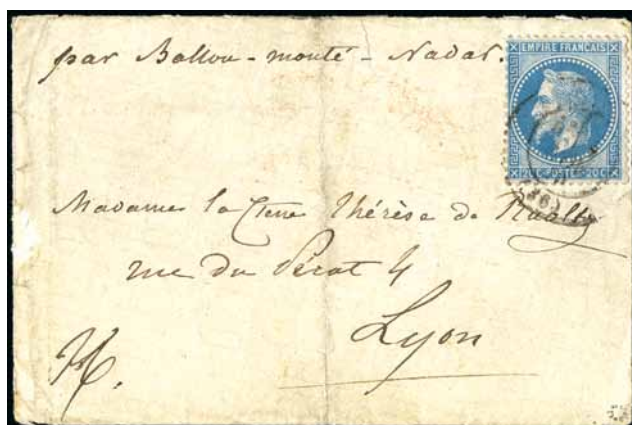 par Ballon - monté - Nadar.
EMPIRE FRANÇAIS
20C POSTES 20C
Madame la Ctesse Thérèse de
rue du Pérat 4
Lyon